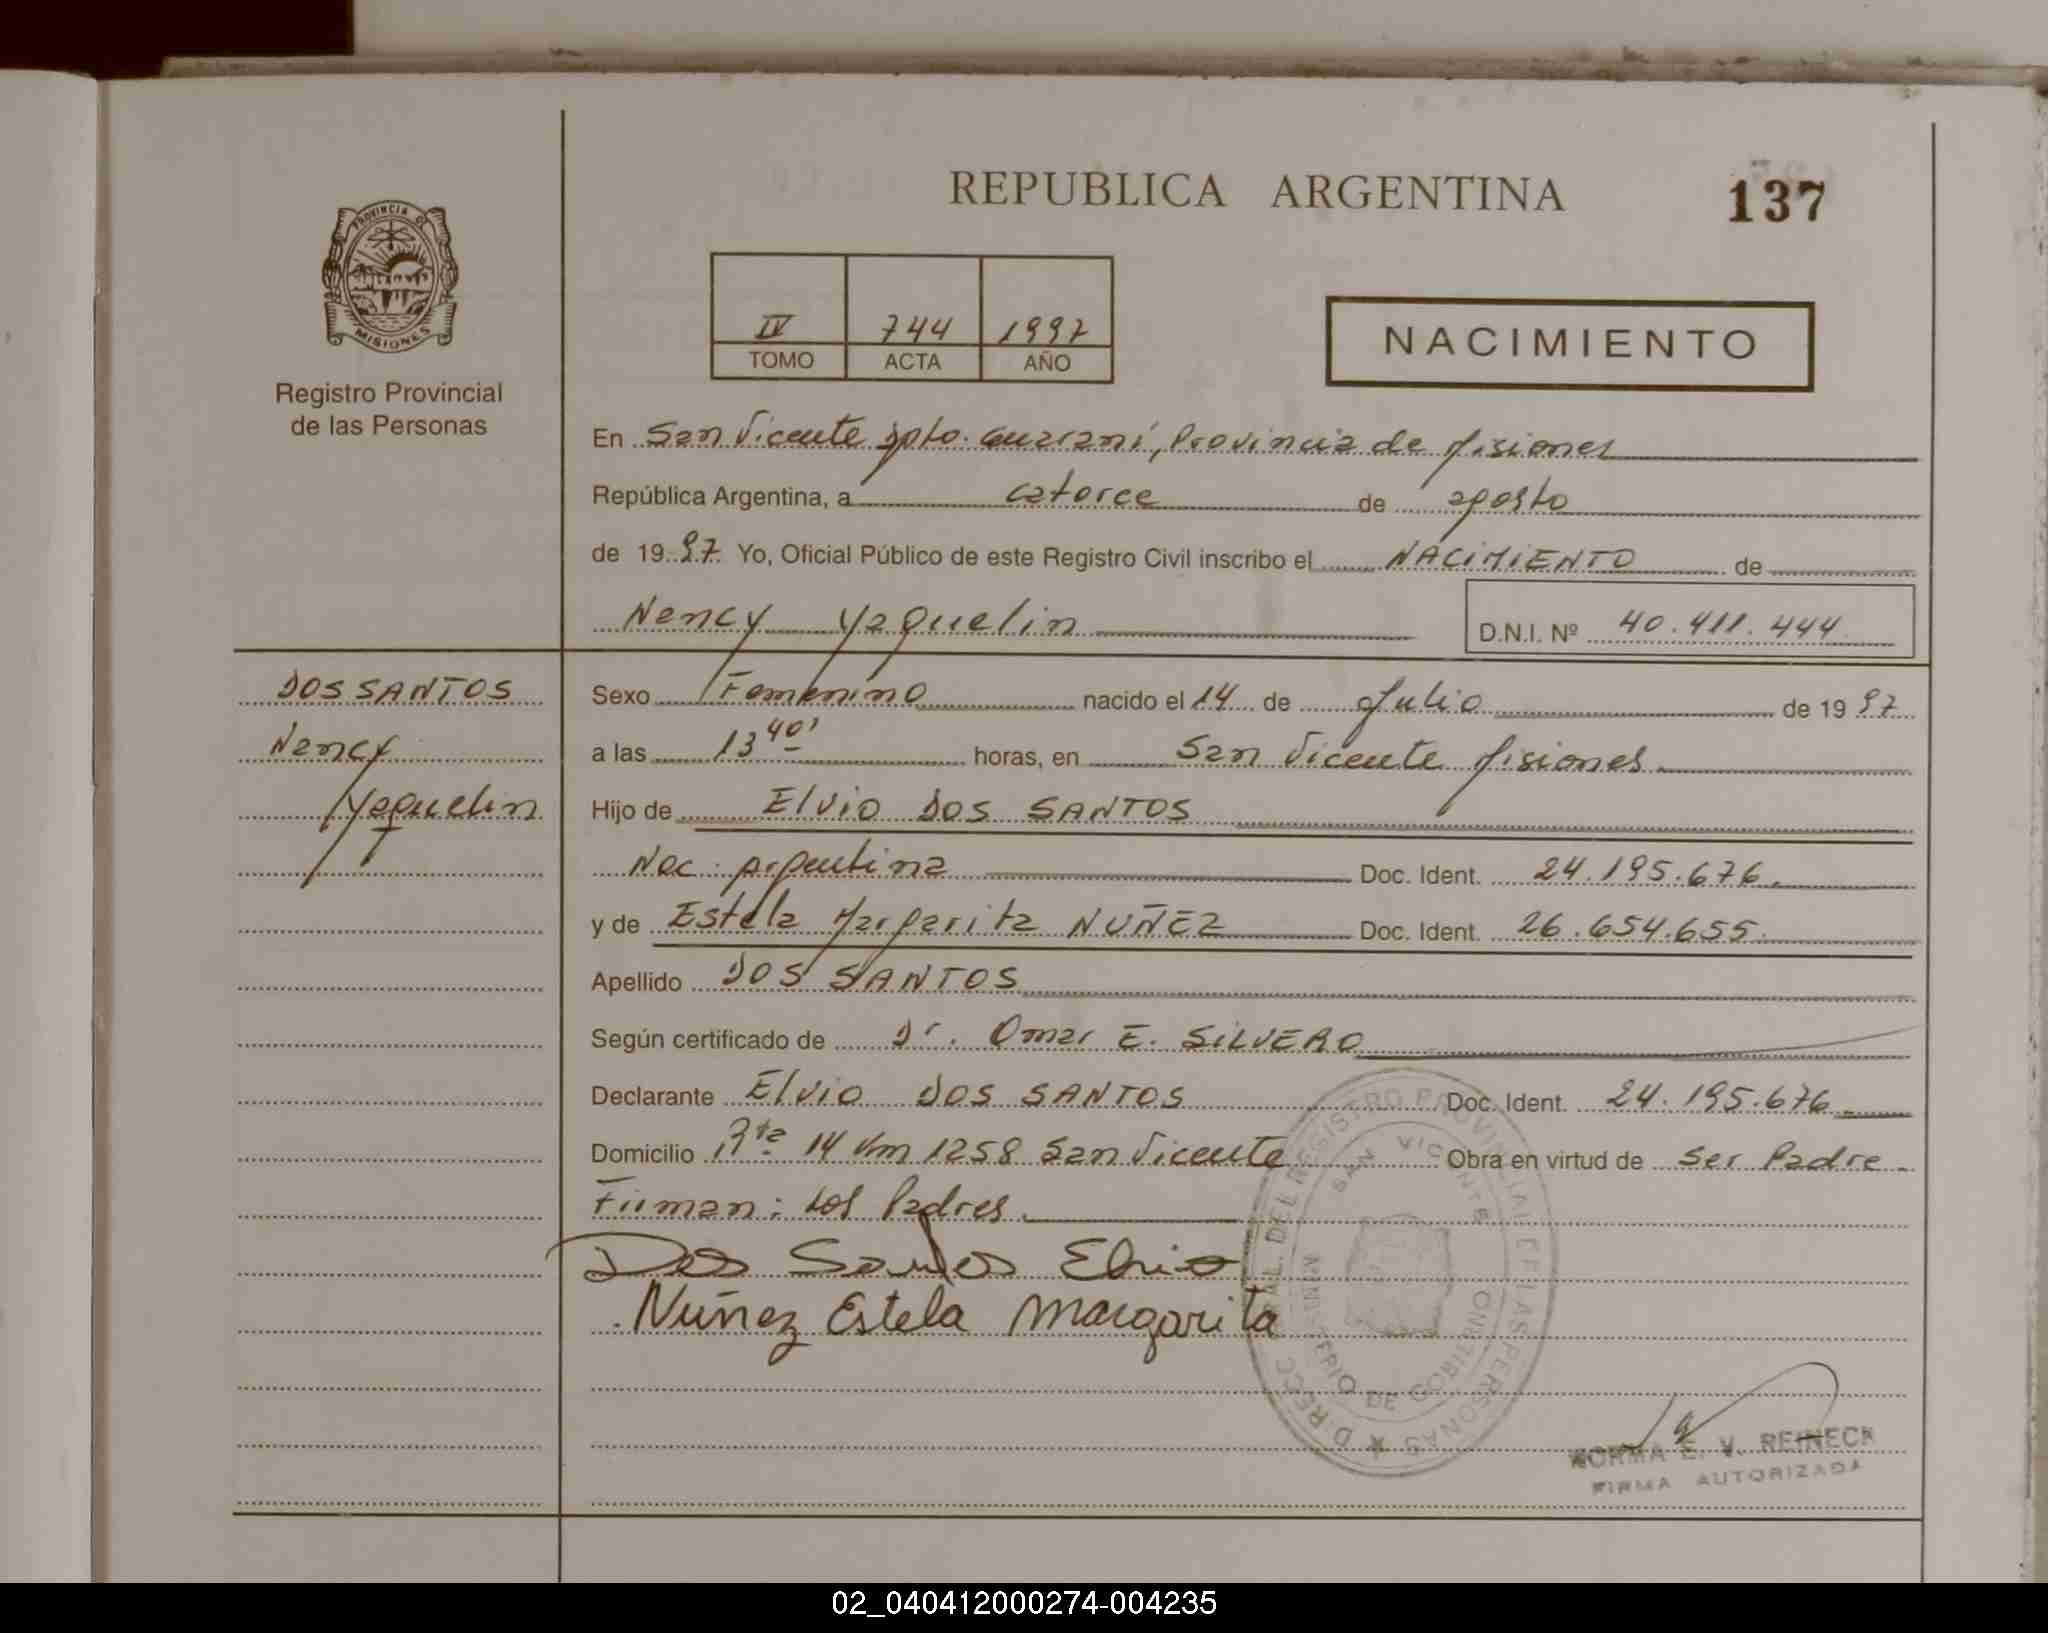 REPUBLICA ARGENTINA
137
PROVINCIA DE
MISIONES
Registro Provincial
de las Personas
IV 744 1997
TOMO ACTA AÑO
NACIMIENTO
En San Vicente Dpto. Guaraní, Provincia de Misiones
República Argentina, a catorce de agosto
de 1997 Yo, Oficial Público de este Registro Civil inscribo el NACIMIENTO de
Nency Yaquelin D.N.I. Nº 40.411.444
DOS SANTOS
Nency
Yaquelin
Sexo Femenino nacido el 14 de Julio de 1997
a las 13 40' horas, en San Vicente Misiones
Hijo de Elvio DOS SANTOS
Nac. Argentina Doc. Ident. 24.195.676.
y de Estela Margarita NUÑEZ Doc. Ident. 26.654.655.
Apellido DOS SANTOS
Según certificado de Dr. Omar E. SILVERO
Declarante Elvio DOS SANTOS Doc. Ident. 24.195.676
Domicilio Rta 14 Km 1258 San Vicente Obra en virtud de Ser Padre
Firman: Los Padres
Dos Santos Elvio
Nuñez Estela Margarita
SAN VICENTE
MINISTERIO DE GOBIERNO
NORMA E. V. REINECK
FIRMA AUTORIZADA
02_040412000274-004235